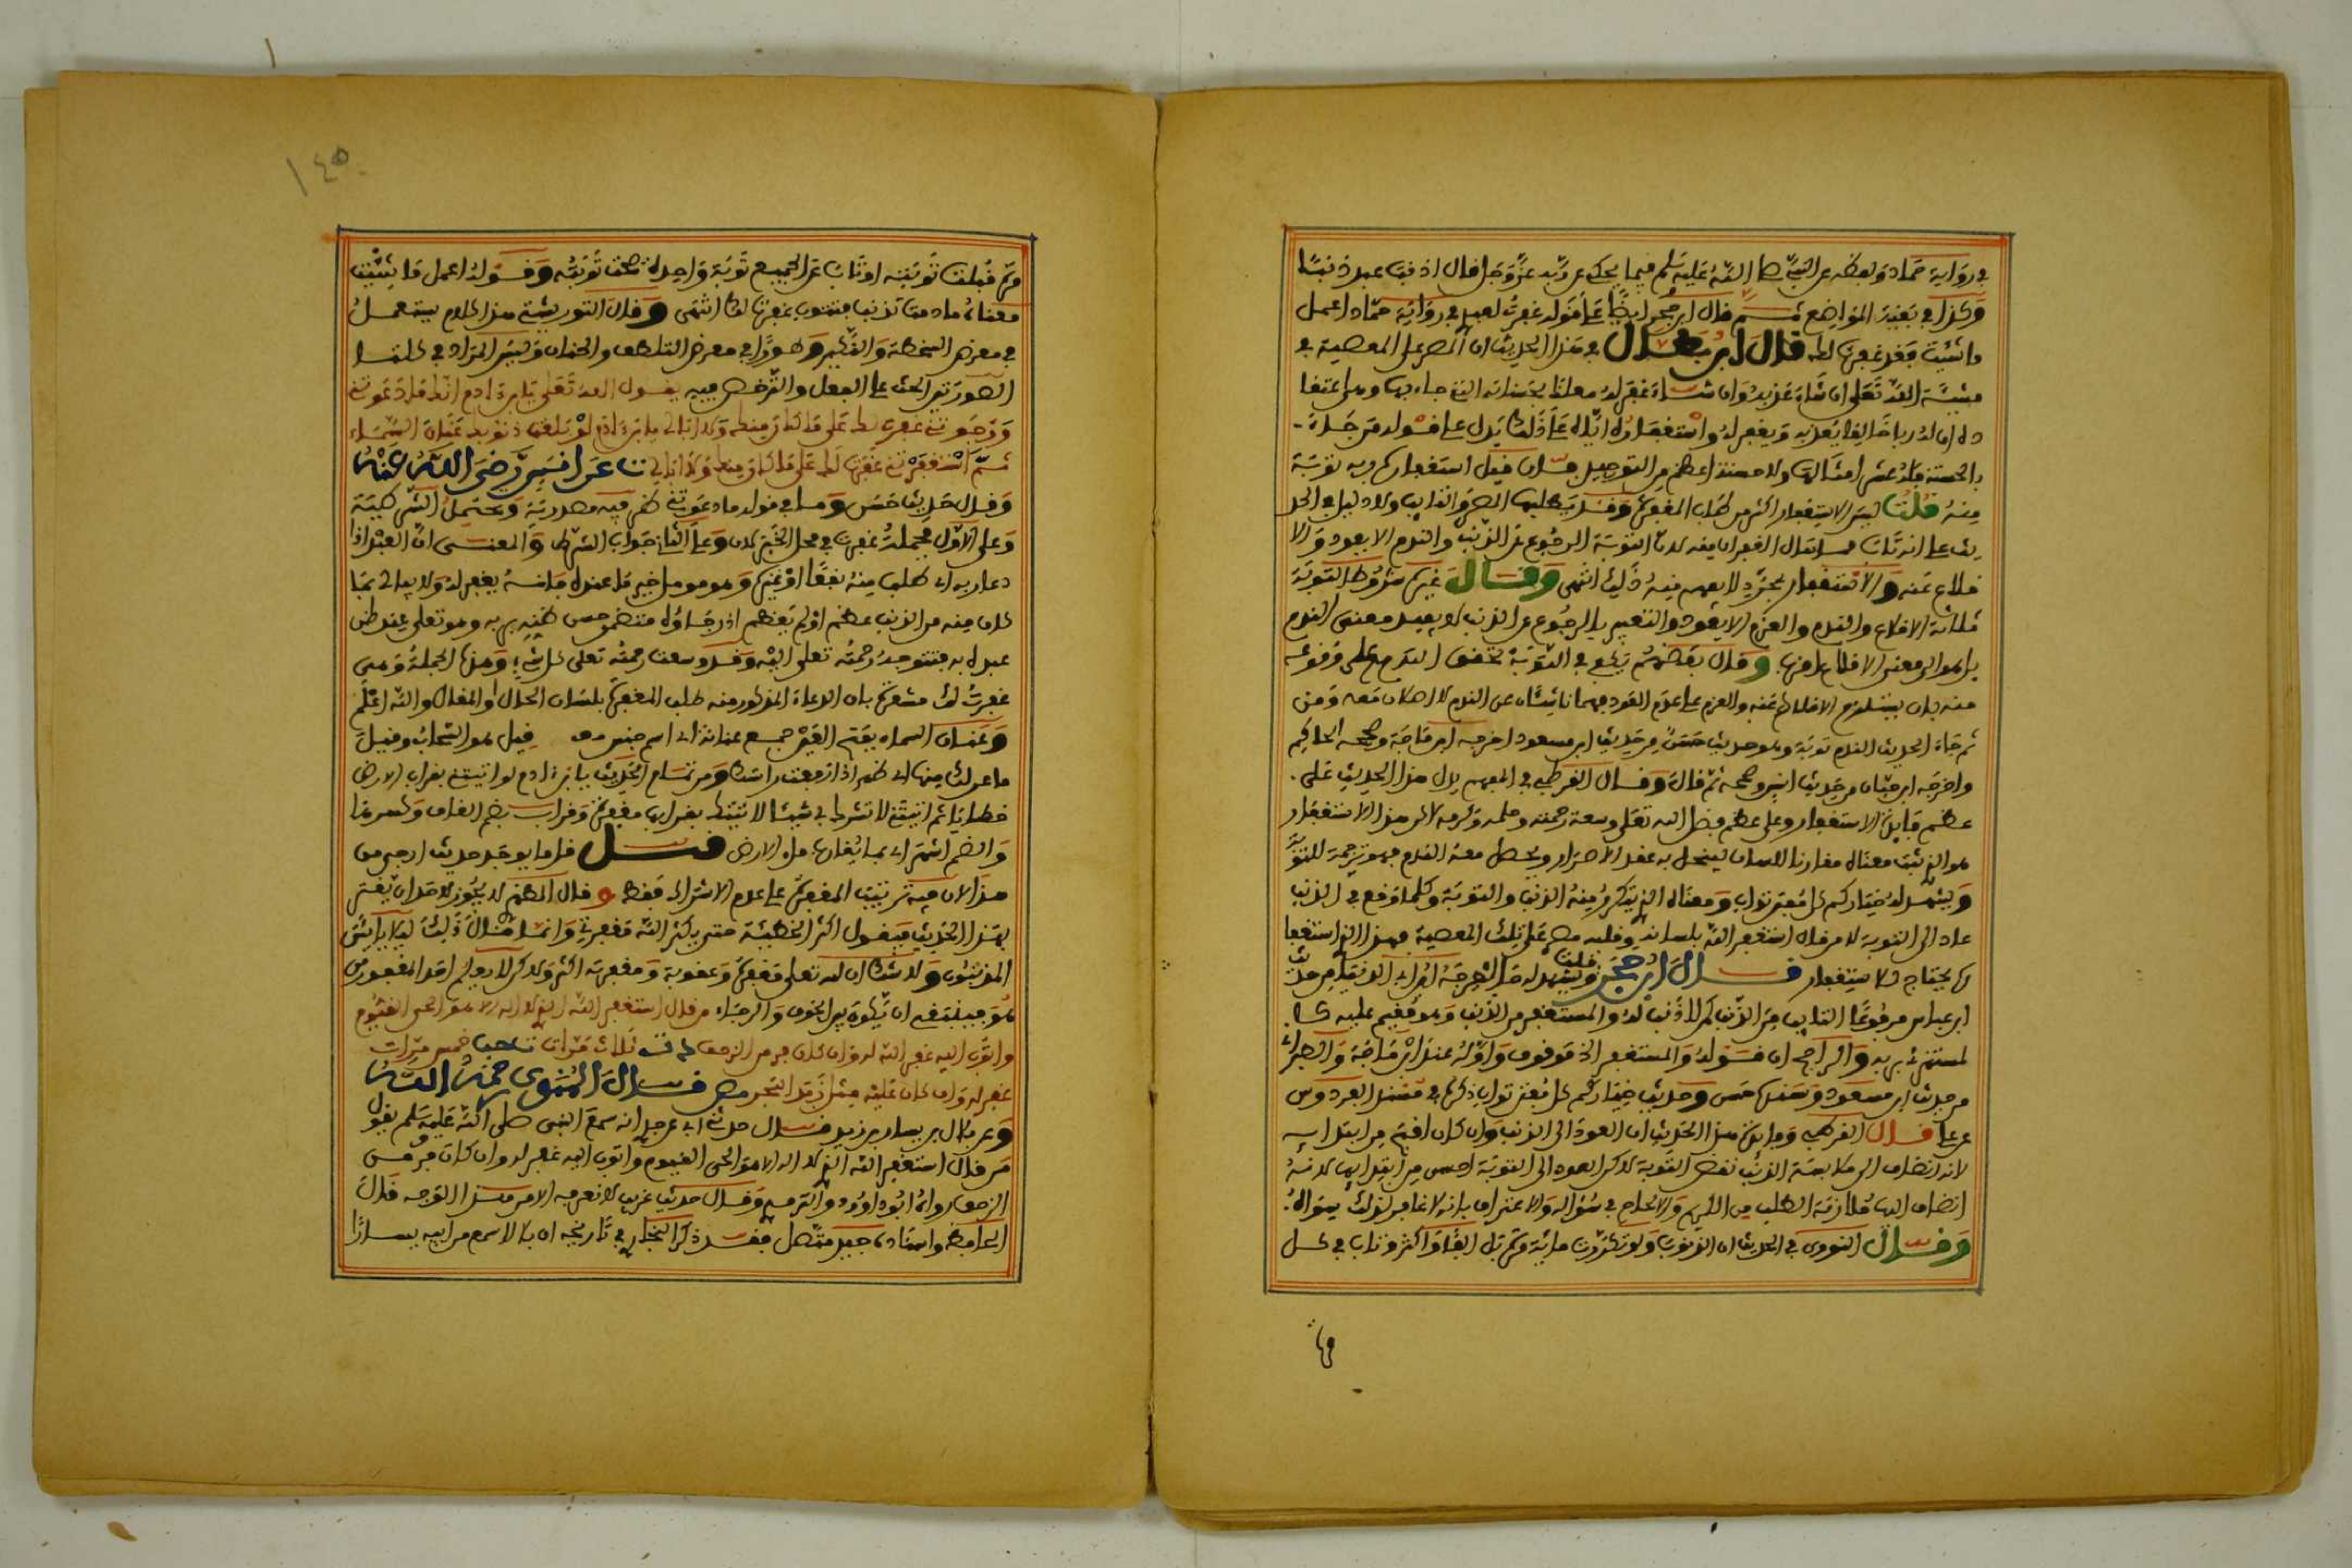 في رواية حماد ولفظه عن النبي صلى الله عليه وسلم فيما يحكي عن ربه عز وجل قال اذنب عبد ذنبا
وكذا في بقية المواضع ثم قال ابن حجر ايضا على قوله غفرت لعبدي في رواية حماد اعمل
ما شئت فقد غفرت لك قال ابن بطال في هذا الحديث ان المصر على المعصية في
مشيئة الله تعلى ان شاء عذبه وان شاء غفر له مغلبا بحسناته التي جاء بها وهي اعتقا
ده ان له ربا خالقا يعذبه ويغفر له واستغفاره اياه على ذلك يدل على قوله من جاء
بالحسنة فله عشر امثالها ولا حسنة اعظم من التوحيد فان قيل استغفاركم ربه توبة
منه قلت ليس الاستغفار اكثر من طلب المغفرة وقد يطلبها المصر والتائب ولا دليل في الحد
يث على انه تائب مما سال الغفران منه لان التوبة الرجوع عن الذنب والندم الا يعود والا
قلاع عنه والاستغفار بمجرد لا يفهم منه ذلك انتهى وقال غيره شروط التوبة
ثلاثة الاقلاع والندم والعزم الا يعود والتعبير بالرجوع عن الذنب لا يفيد معنى الندم
بل هو الى معنى الاقلاع اقرب وقال بعضهم يكفي في التوبة تحقق الندم على وقوعه
منه فان يستلزم الاقلاع عنه والعزم على عدم العود فهما ناشئان عن الندم لا اصلان معه ومن
ثم جاء الحديث الندم توبة وهو حديث حسن من حديث ابن مسعود اخرجه ابن ماجة وصححه الحاكم
واخرجه ابن حبان من حديث انس وصححه ثم قال وقال القرطبي في المفهم يدل هذا الحديث على
عظيم فائدة الاستغفار وعلى عظيم فضل الله تعلى وسعة رحمته وحلمه وكرمه لاكن هذا الاستغفار
هو الذي ثبت معناه مقارنا للسان لينحل به عقد الاصرار ويحصل معه الندم فهو ترجمة للتوبة
ويشهد له خياركم كل مفتن تواب ومعناه الذي يتكرر منه الذنب والتوبة وكلما وقع في الذنب
عاد الى التوبة لا من قال استغفر الله بلسانه وقلبه مصر على تلك المعصية فهذا الذي استغفا
ره يحتاج لاستغفار قال ابن حجر قلت ويشهد له ما اخرجه ابن ابي الدنيا من حديث
ابن عباس مرفوعا التائب من الذنب كمن لا ذنب له والمستغفر من الذنب وهو مقيم عليه كا
لمستهزئ بربه والراجح ان قوله والمستغفر الخ موقوف واوله عند ابن ماجة والطبراني
من حديث ابن مسعود وسنده حسن وحديث خياركم كل مفتن تواب ذكره في مسند الفردوس
عن علي قال القرطبي وفائدة هذا الحديث ان العود الى الذنب وان كان اقبح من ابتدائه
لانه انضاف الى ملابسة الذنب نقض التوبة لاكن العود الى التوبة احسن من ابتدائها لانه
انضاف اليها ملازمة الطلب من الكريم والالحاح في سؤاله والاعتراف بانه لا غافر لذلك سواه
وقال النووي في الحديث ان الذنوب ولو تكررت ماية مرة بل الفا واكثر وتاب في كل
مرة قبلت توبته او تاب عن الجميع توبة واحدة صحت توبته وقوله اعمل ما شئت
معناه ما دمت تذنب فتتوب غفرت لك انتهى وقال التوربشتي هذا الكلام يستعمل
في معرض السخطة والنكير وطورا في معرض التلطف والحنان وليس المراد في كلتا
الصورتين الحث على الفعل والترخص فيه يقول الله تعلى يا ابن ءادم انك ما دعوتني
ورجوتني غفرت لك على ما كان منك ولا ابالي يا ابن ءادم لو بلغت ذنوبك عنان السماء
ثم استغفرتني غفرت لك على ما كان منك ولا ابالي ت عن انس رضي الله عنه
وقال حديث حسن وما في قوله ما دعوتني ظرفية مصدرية ويحتمل الشرطية
وعلى الاول فجملة غفرت في محل الخبر لان وعلى الثاني جواب الشرط والمعنى ان العبد اذا
دعا ربه اي طلب منه نفعا او غيره وهو مومل خير ما عنده فانه يغفر له ولا يبالي بما
كان منه من الذنب عظم او لم يعظم اذ رجاؤه متضمن حسن ظنه بربه وهو تعلى عند ظن
عبده به فتتوجه رحمة تعلى اليه وقد وسعت رحمته تعلى كل شيء وهذه الجملة وهي
غفرت لك مشعرة بان الدعاء المذكور منه طلب المغفرة بلسان الحال او المقال والله اعلم
وعنان السماء بفتح العين جمع عنانة اي اسم جنس قيل هو السحاب وقيل
ما عن لك منها اي ظهر اذا رفعت راسك ومن تمام الحديث يا ابن ءادم لو اتيتني بقراب الارض
خطايا ثم اتيتني لا تشرك بي شيئا لاتيتك بقرابها مغفرة وقراب بضم القاف وكسرها
والضم اشهر اي بما يقارب ملء الارض قيل ما يوجد حديث ارجى من
هذا لان فيه ترتيب المغفرة على عدم الاشراك فقط و قال المظهر لا يجوز لاحد ان يغتر
بهذا الحديث فيقول اكثر الخطيئة حتى يكثر الله مغفرتي وانما قال ذلك ليلا يايس
المذنبون ولا شك ان لله تعلى مغفرة وعقوبة ومغفرته اكثر ولاكن لا يعلم احد المغفور من
هو فينبغي ان يكون بين الخوف والرجاء من قال استغفر الله الذي لا اله الا هو الحي القيوم
واتوب اليه غفر الله له وان كان فر من الزحف ثلاث مرات خمس مرات
غفر له وان كان عليه مثل زبد البحر قال المنوي رحمه الله
وعن بلال بن يسار بن زيد قال حدثني ابي عن جدي انه سمع النبي صلى الله عليه وسلم يقول
من قال استغفر الله الذي لا اله الا هو الحي القيوم واتوب اليه غفر له وان كان فر من
الزحف رواه ابو داوود والترمذي وقال حديث غريب لا نعرفه الا من هذا الوجه قال
الحافظ واسناده جيد متصل فقد ذكر البخاري في تاريخه ان بلالا سمع من ابيه يسار